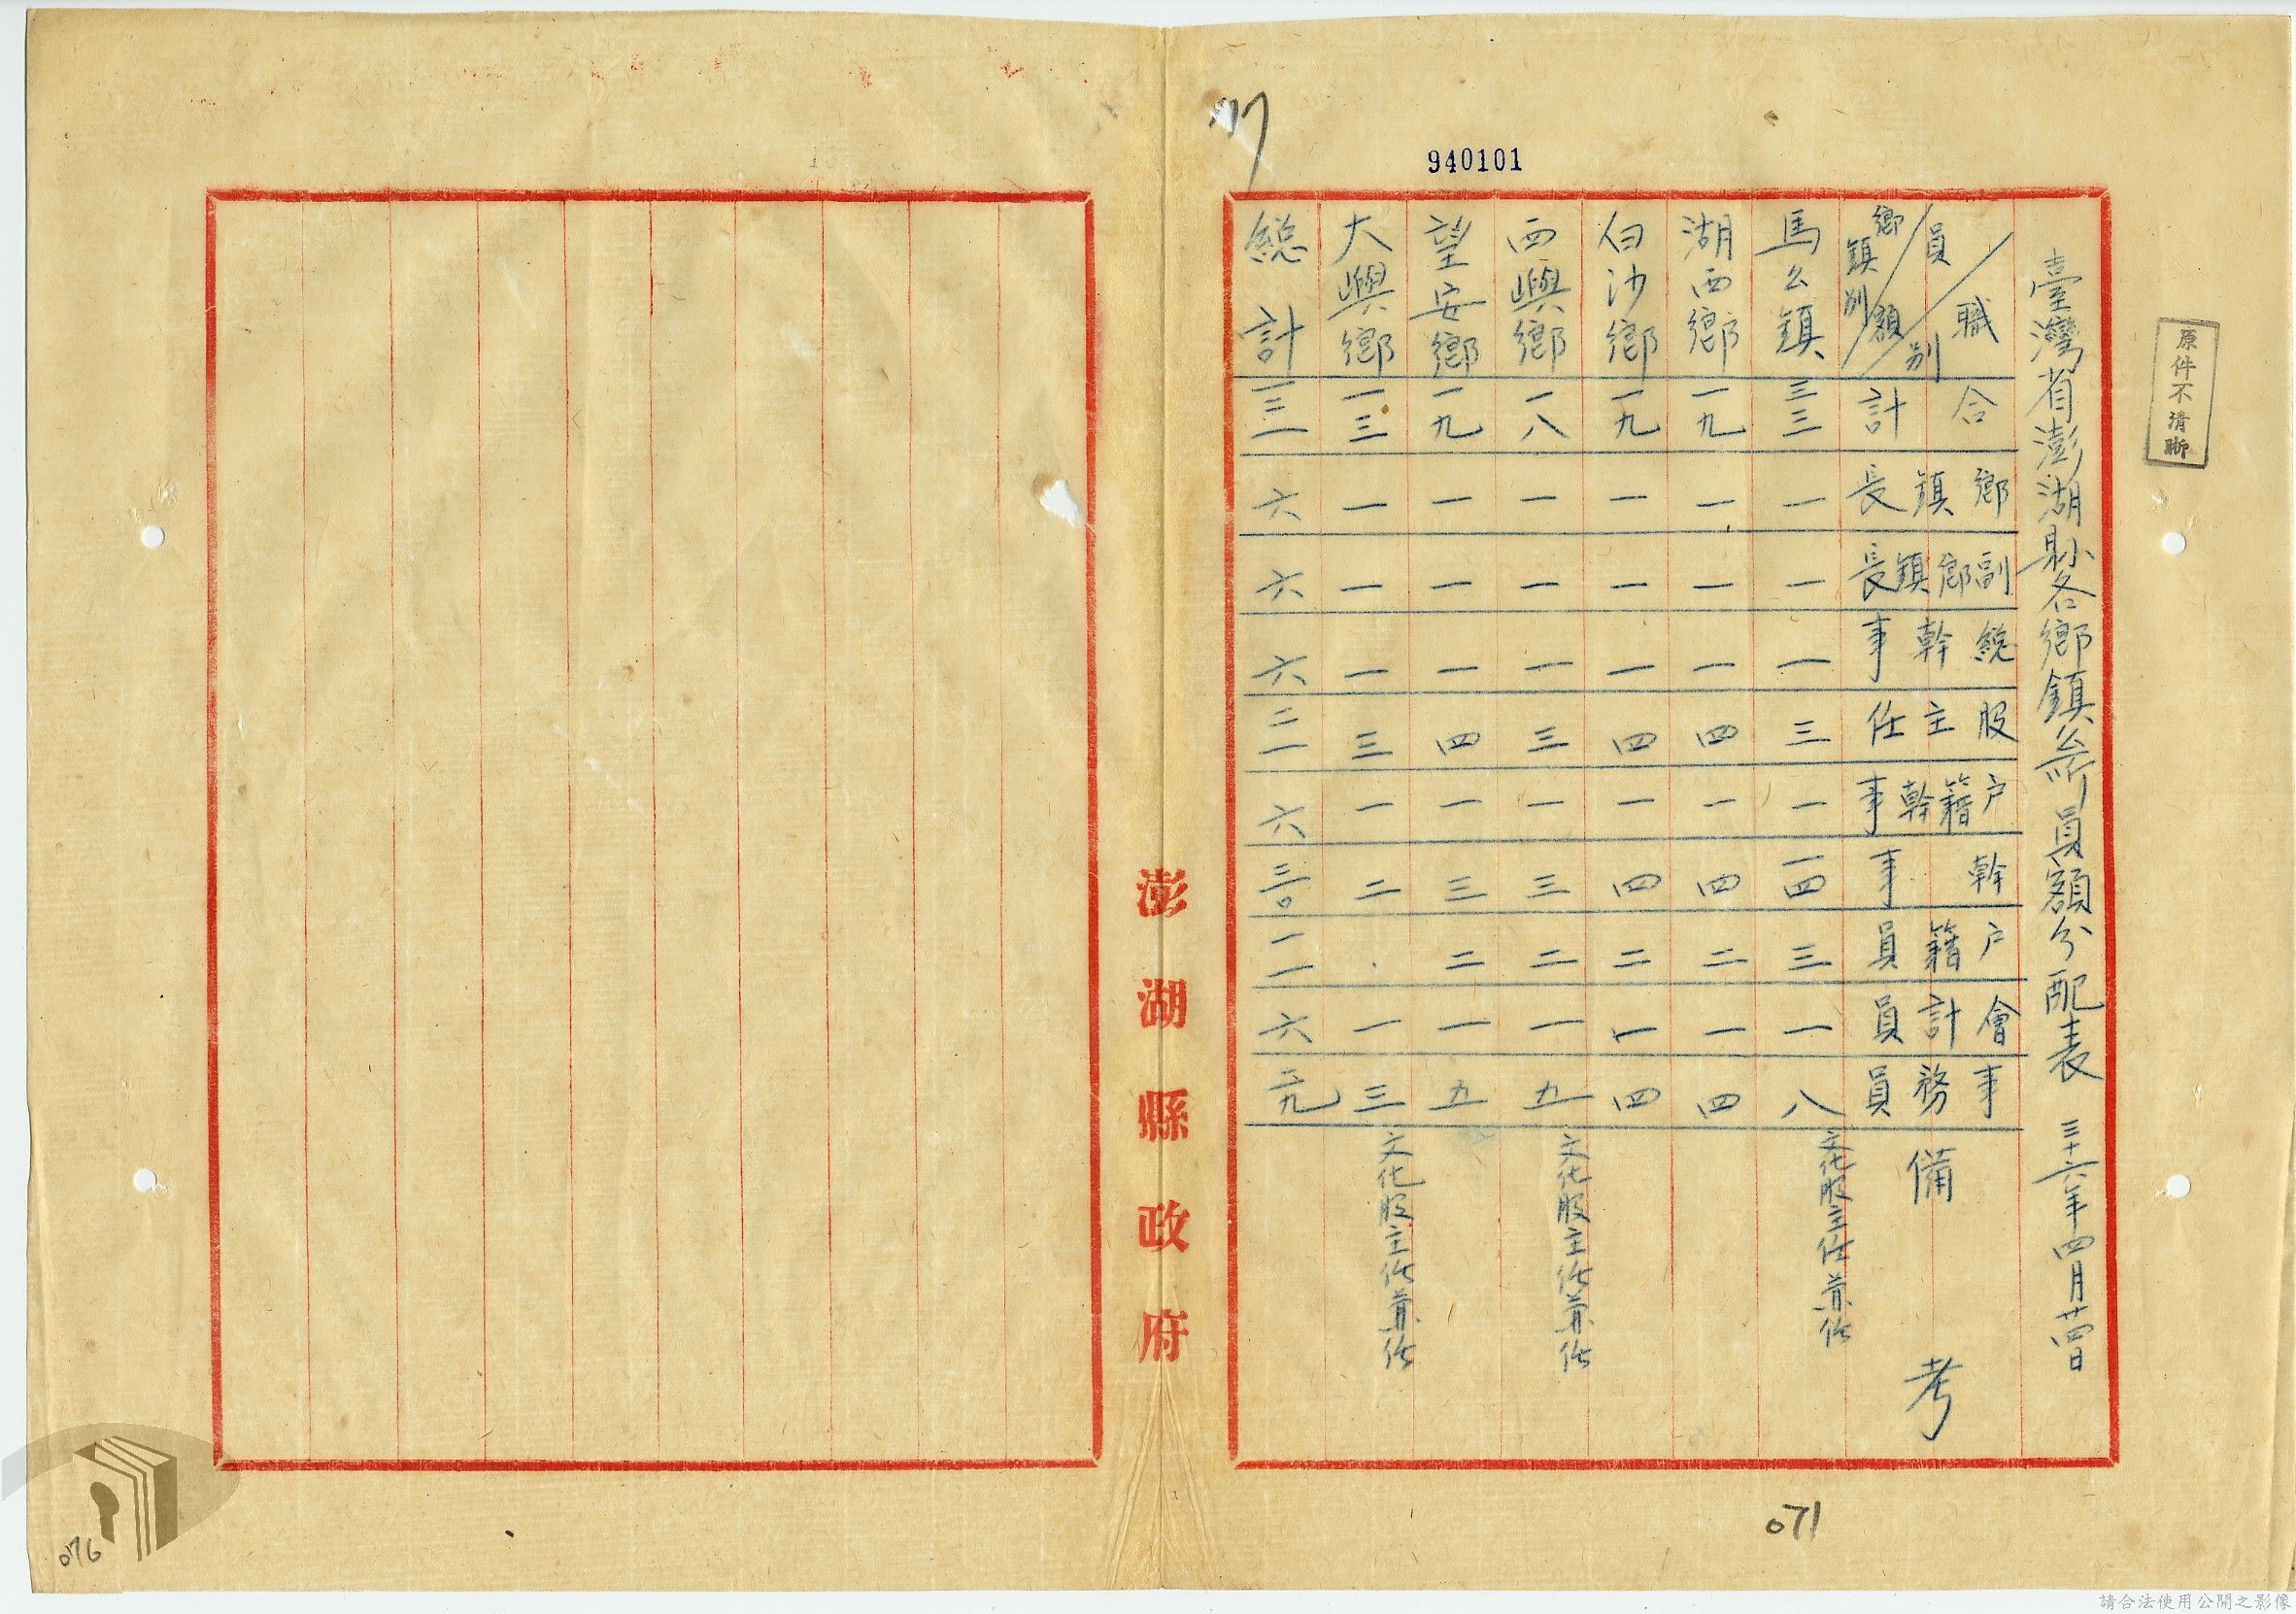 原件不清晰
臺灣省澎湖縣各鄉鎮公所員額分配表 三十六年四月廿四日
職別 員額 鄉鎮別 合計 鄉鎮長 副鄉鎮長 總幹事 股主任 户籍幹事 幹事 户籍員 會計員 事務員 備考
馬公鎮 三三 一 一 一 三 一 一四 三 一 八 文化股主任兼任
湖西鄉 一九 一 一 一 四 一 四 二 一 四
白沙鄉 一九 一 一 一 四 一 四 二 一 四
西嶼鄉 一八 一 一 一 三 一 三 二 一 五 文化股主任兼任
望安鄉 一九 一 一 一 四 一 三 二 一 五
大嶼鄉 一三 一 一 一 三 一 二 · 一 三 文化股主任兼任
總計 一二一 六 六 六 二一 六 三〇 一一 六 二九
940101
071
澎湖縣政府
076
請合法使用公開之影像